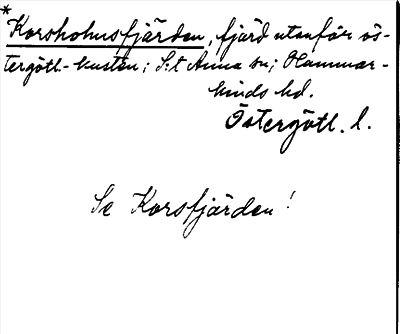 * Korsholmsfjärden, fjärd utanför ös-
tergötl.-kusten; S:t Anna sn; Hammar-
kinds hd.
Östergötl. l.
Se Korsfjärden!